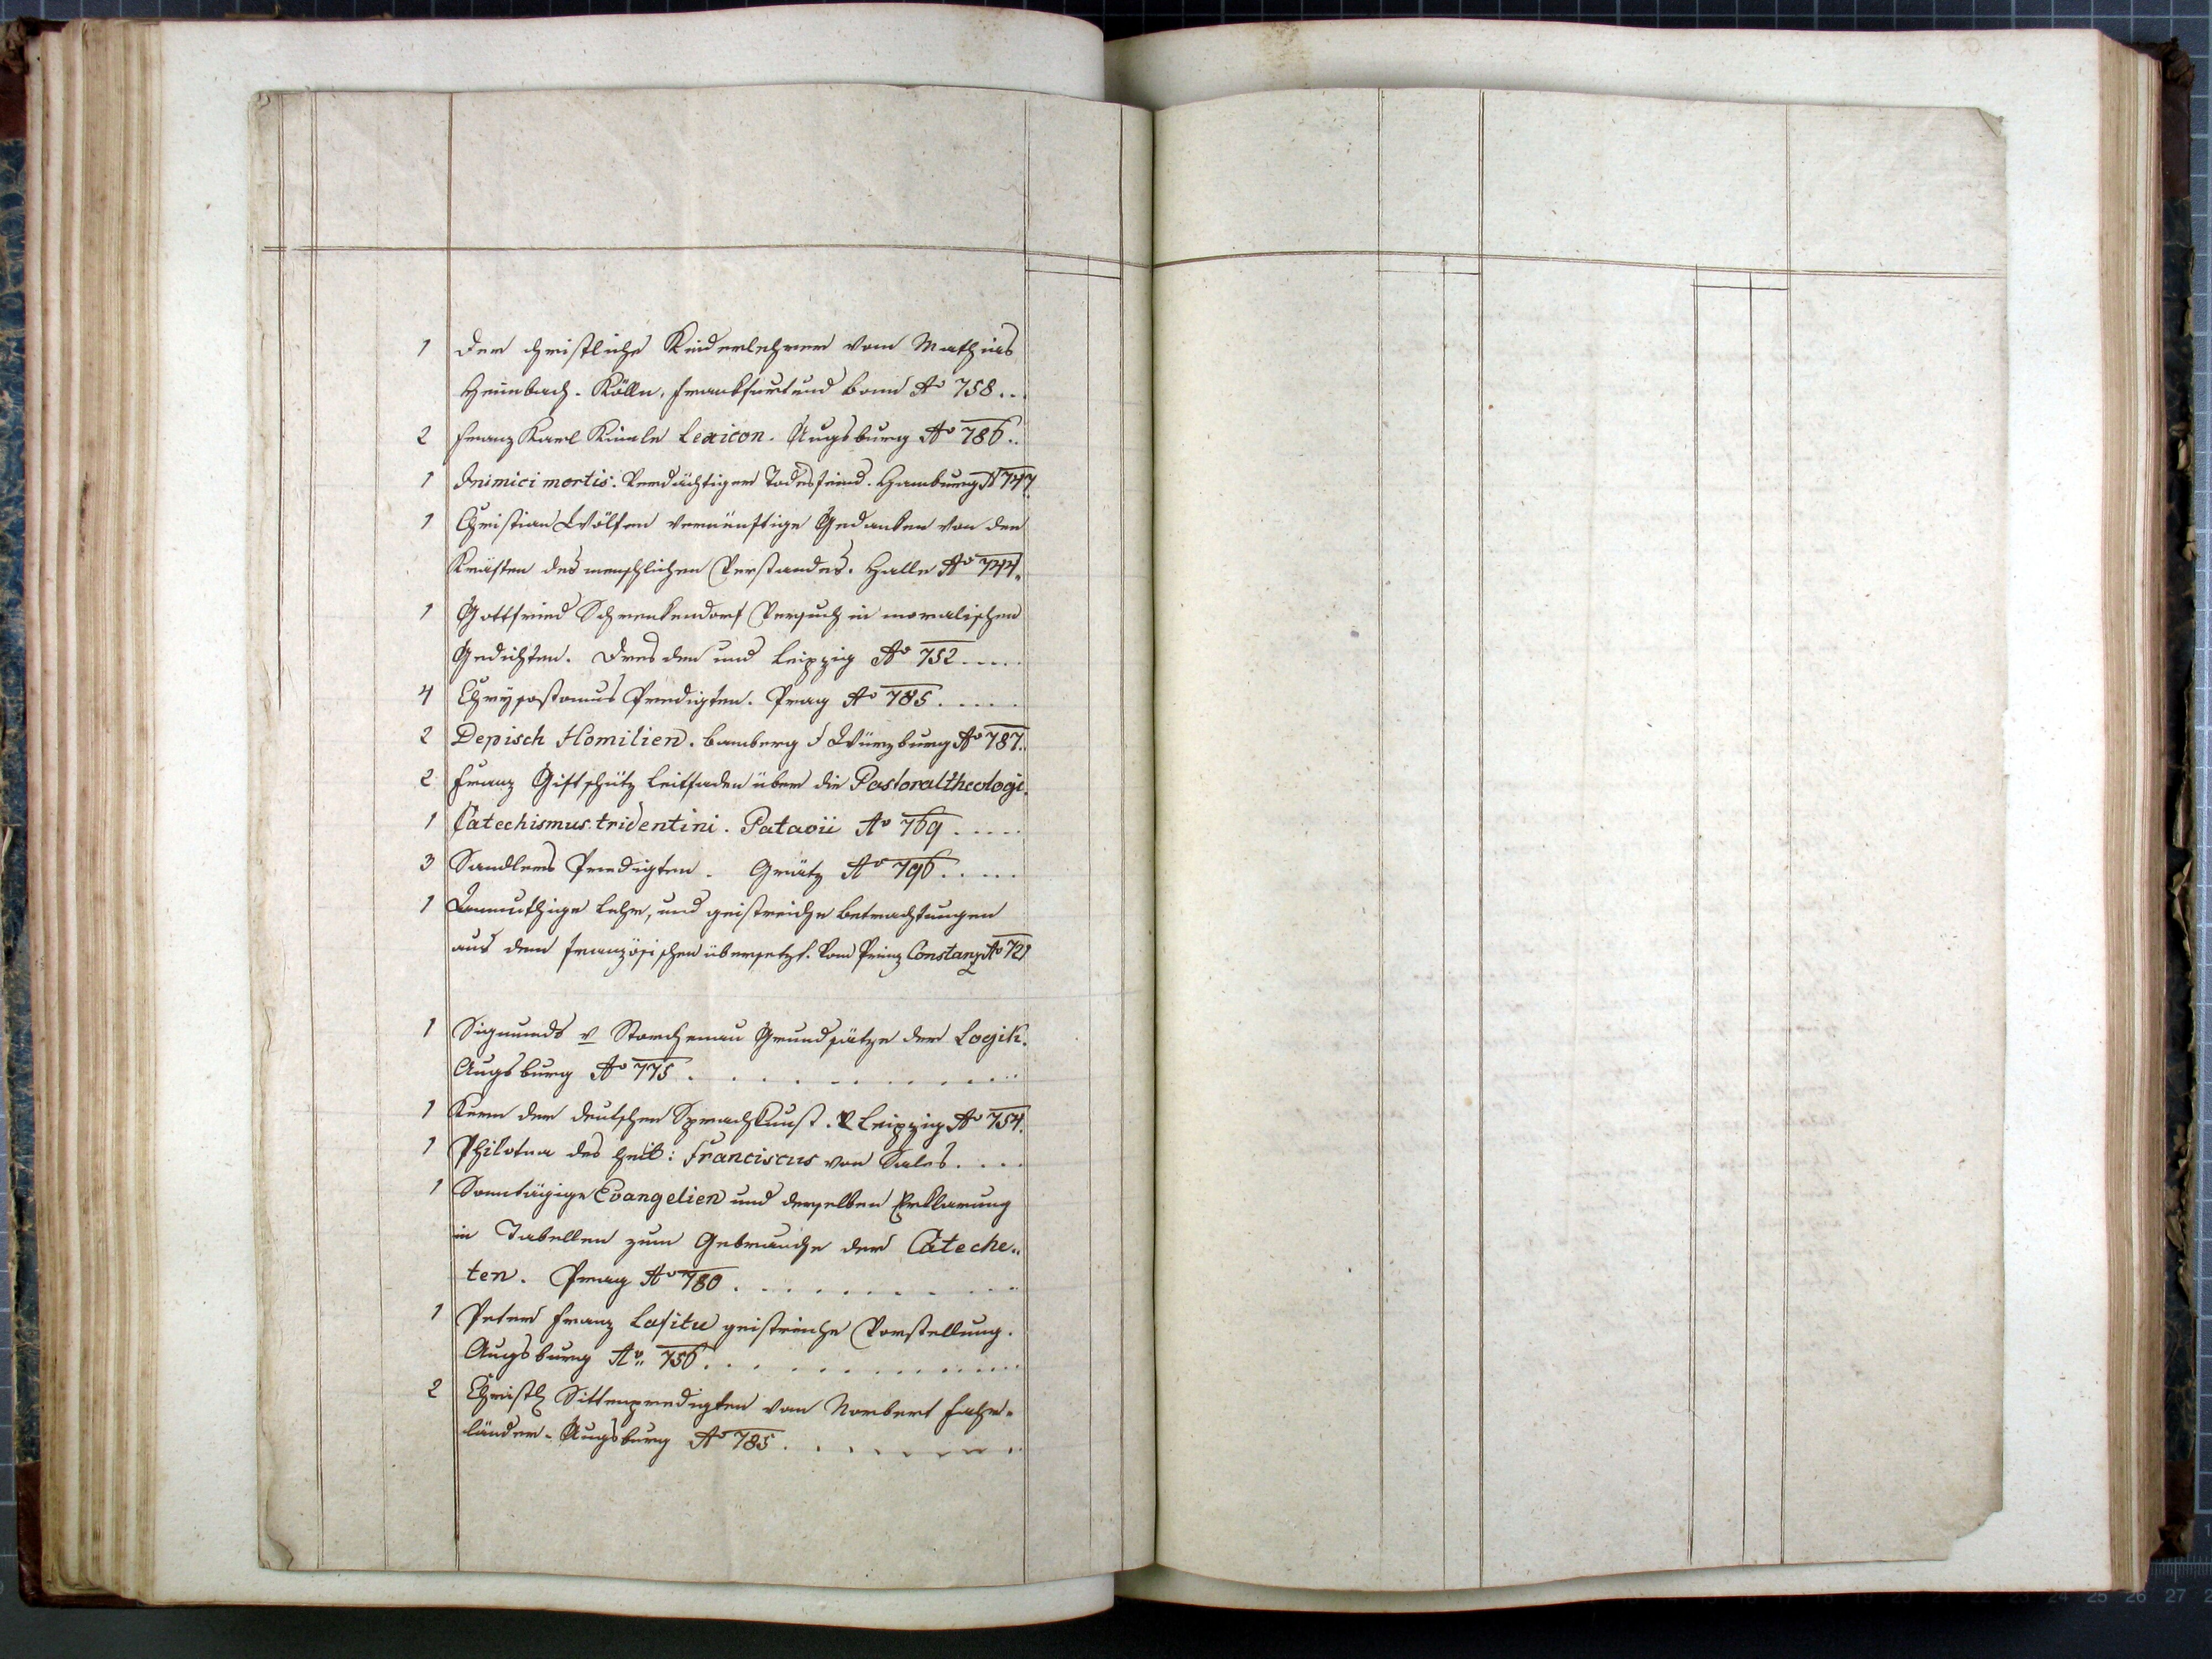 1 Der christliche Kinderlehrer vom Mathias
Heimbach. Kölln, Frankfurt und Bonn Ao 758...
2 Franz Karl Kienle Lexicon. Augsburg Ao 786..
1 Inimici mortis. Verdächtiger Todesfeind. Hamburg A 747
1 Christian Wölfen vernünftige Gedanken von den
Kräften des menschlichen Verstandes. Halle Ao 744.
1 Gottfried Schrenkendorf Versuch in moralischen
Gedichten. Dresden und Leipzig Ao 752.....
4 Chrÿsostomus Predigten. Prag Ao 785.....
2 Depisch Homilien. Bamberg & Würzburg Ao 787.
2 Franz Giftschütz Leitfaden über die Pastoraltheologi.
1 Catechismus tridentini. Patavii Ao 769.....
3 Sandlers Predigten. Grätz Ao 796.....
1 Anmuthige Lehr, und geistreiche Betrachtungen
aus dem französischen übersetzt. Vom Prinz Constanz Ao 721
1 Sigmunds v Storchenau Grundsätze der Logik.
Augsburg Ao 775...........
1 Kern der deutschen Sprachkunst. Leipzig Ao 754.
1 Philotea des heil: Franciscus von Sales....
1 Sonntägige Evangelien und derselben Erklarung
in Tabellen zum Gebrauche der Cateche..
ten. Prag Ao 780..........
1 Peter Franz Lafitu geistreiche Vorstellung.
Augsburg Ao. 756...........
2 Christl Sittenpredigten von Norbert Fahr-
länder. Augsburg Ao 785.........
25 26 27